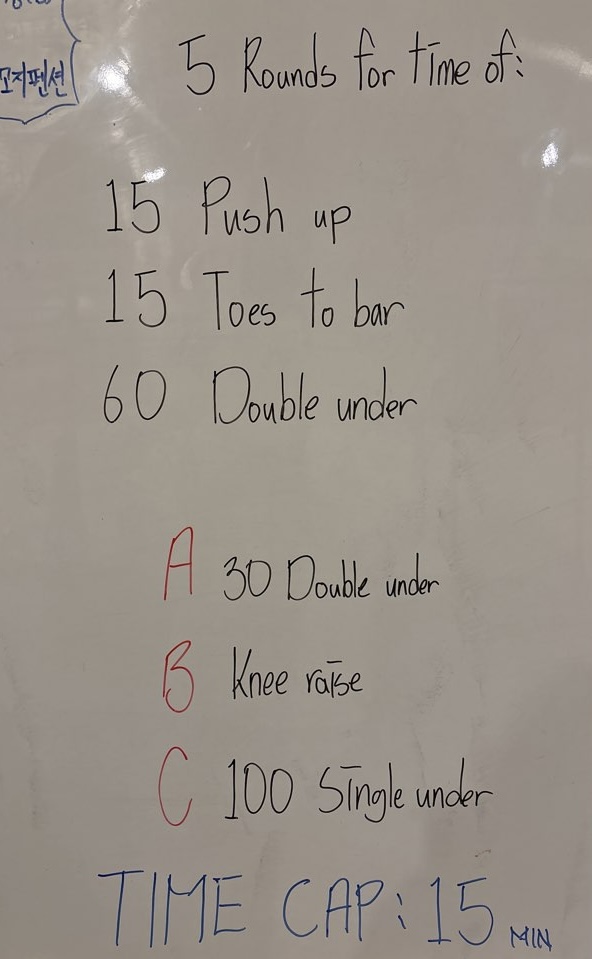 꼬지펜션
5 Rounds for time of:
15 Push up
15 Toes to bar
60 Double under
A 30 Double under
B Knee raise
C 100 Single under
TIME CAP: 15 MIN